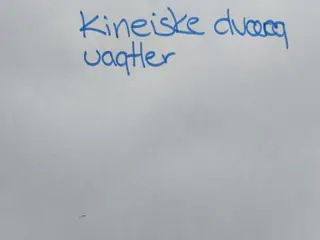 Kineiske dværg
vagtler